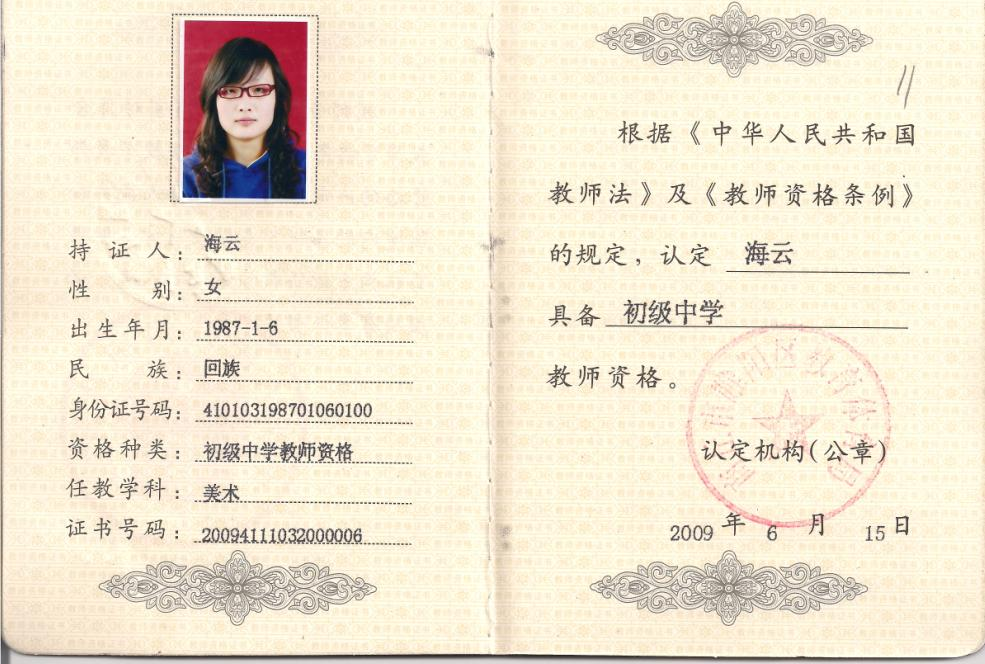 持证人：海云
性别：女
出生年月：1987-1-6
民族：回族
身份证号码：410103198701060100
资格种类：初级中学教师资格
任教学科：美术
证书号码：20094111032000006
11
根据《中华人民共和国
教师法》及《教师资格条例》
的规定，认定 海云
具备 初级中学
教师资格。
认定机构(公章)
2009 年 6 月 15 日